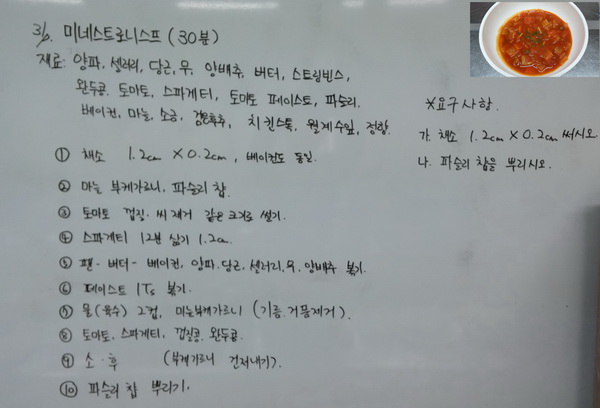 3/6. 미네스트로니스프 (30분)
재료: 양파, 샐러리, 당근, 무, 양배추, 버터, 스트링빈스,
완두콩, 토마토, 스파게티, 토마토 페이스트, 파슬리,
베이컨, 마늘, 소금, 검은후추, 치킨스톡, 월계수잎, 정향
① 채소 1.2cm × 0.2cm, 베이컨도 동일.
② 마늘 부케가르니, 파슬리 찹
③ 토마토 껍질·씨 제거 같은 크기로 썰기.
④ 스파게티 12분 삶기 1.2cm.
⑤ 팬 - 버터 - 베이컨, 양파, 당근, 샐러리, 무, 양배추 볶기.
⑥ 페이스트 1Ts 볶기.
⑦ 물(육수) 2컵, 마늘부케가르니 (기름·거품제거).
⑧ 토마토, 스파게티, 껍질콩, 완두콩.
⑨ 소·후 (부케가르니 건져내기).
⑩ 파슬리 찹 뿌리기.
※요구사항.
가. 채소 1.2cm × 0.2cm 써시오
나. 파슬리 찹을 뿌리시오.